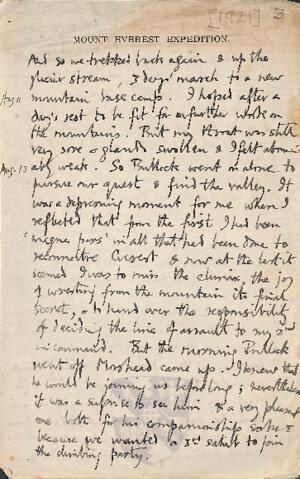 [1921] 3
MOUNT EVEREST EXPEDITION.
And so we trekked back again & up the
glacier stream, 3 days' march to a new
Aug 11 mountain base camp. I hoped after a
day's rest to be fit for further work on
the mountains. But my throat was still
very sore & glands swollen & I felt abomin-
Aug. 13 ably weak. So Bullock went on alone to
pursue our quest & find the valley. It
was a depressing moment for me when I
reflected that from the first I had been
'magna pars' in all that had been done to
reconnoitre Everest & now at the last it
seemed I was to miss the climax, the joy
of wresting from the mountain its final
secret, & to hand over the responsibility
of deciding the line of assault to my 2nd
in command. But the morning Bullock
went off Morshead came up. I knew that
he would be joining us before long; nevertheless
it was a surprise to see him & a very pleasant
one both for his companionship's sake &
because we wanted a 3rd sahib to join
the climbing party.